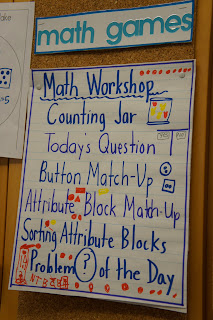 math games
Math Workshop
Counting Jar
Today's Question
Button Match-Up
Attribute Block Match-Up
Sorting Attribute Blocks
Problem ? of the Day